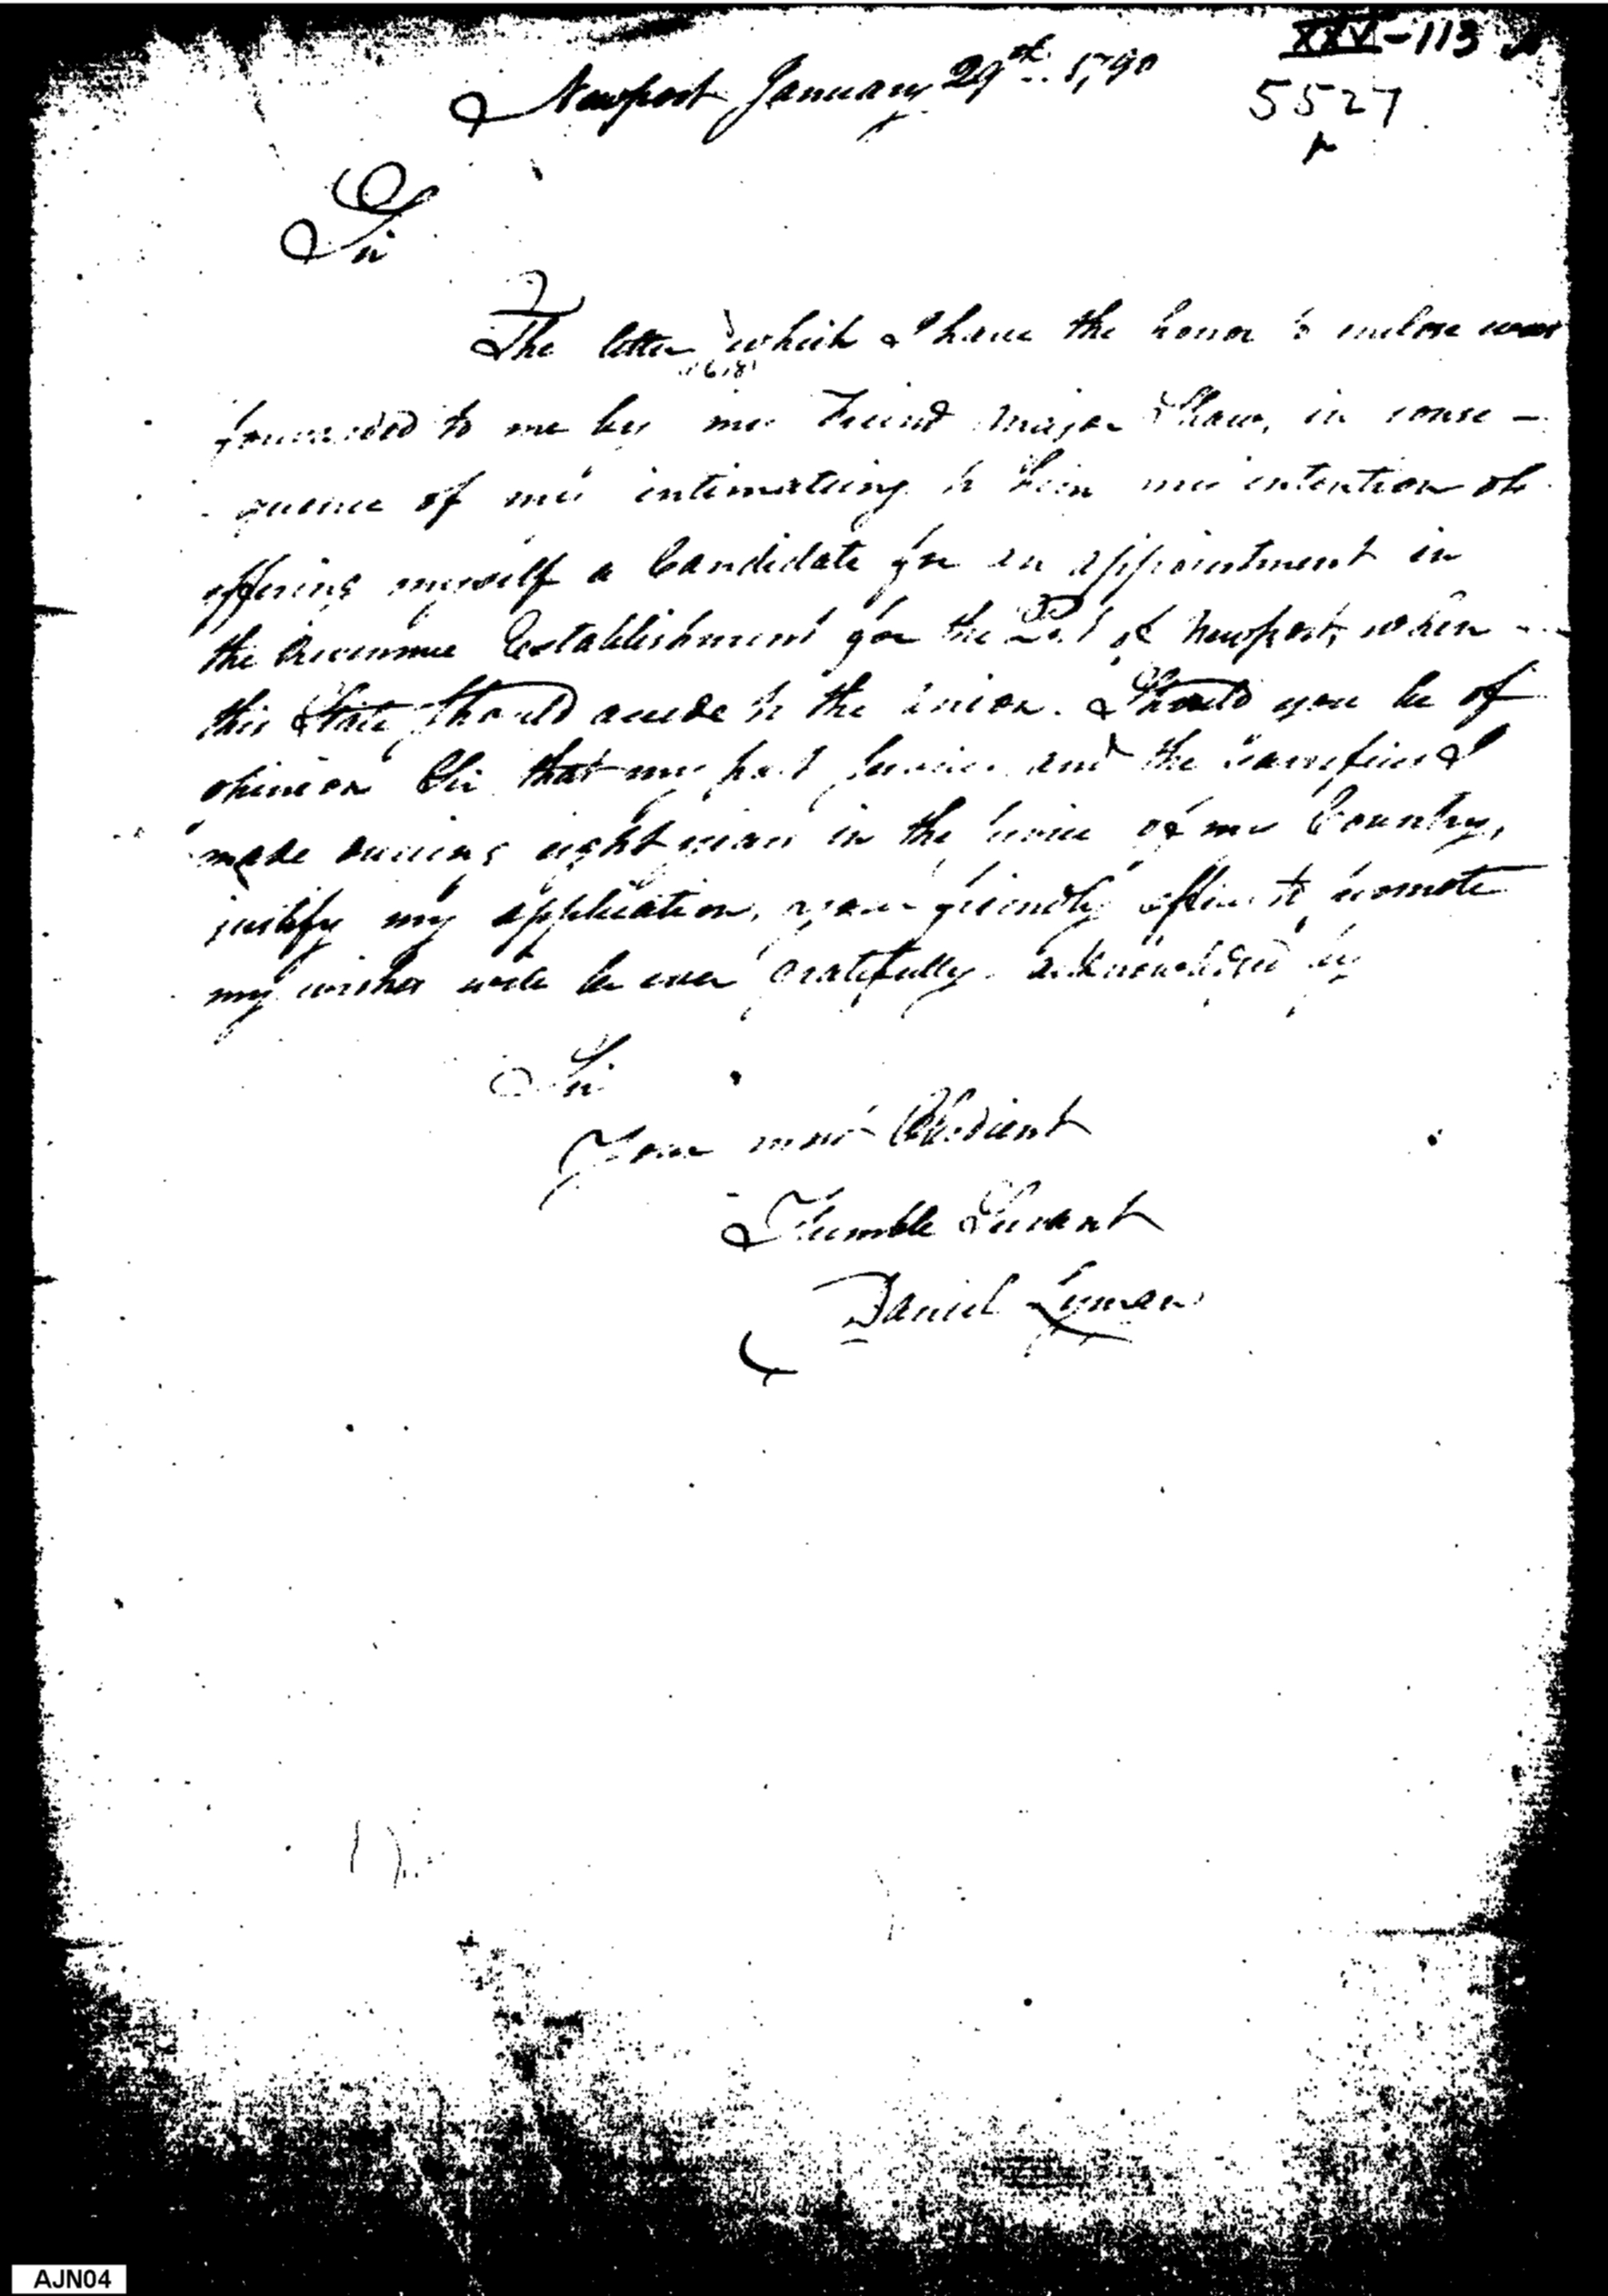 XXV-113
Newport January 29th 1790
5527
Sir
The letter which I have the honor to inclose was
forwarded to me by my Friend Major Shaw, in conse-
quence of my intimateing to him my intention of
offering myself a Candidate for an appointment in
the Revenue Establishment for the Port of Newport, when
this State should accede to the Union. Should you be of
opinion Sir that my past services and the sacrefices I
made during eight years in the service of my Country,
justify my application, your friendly offices to promote
my wishes will be ever gratefully acknowledged by
Sir
Your most Obedient
Humble Servant
Daniel Lyman
AJN04